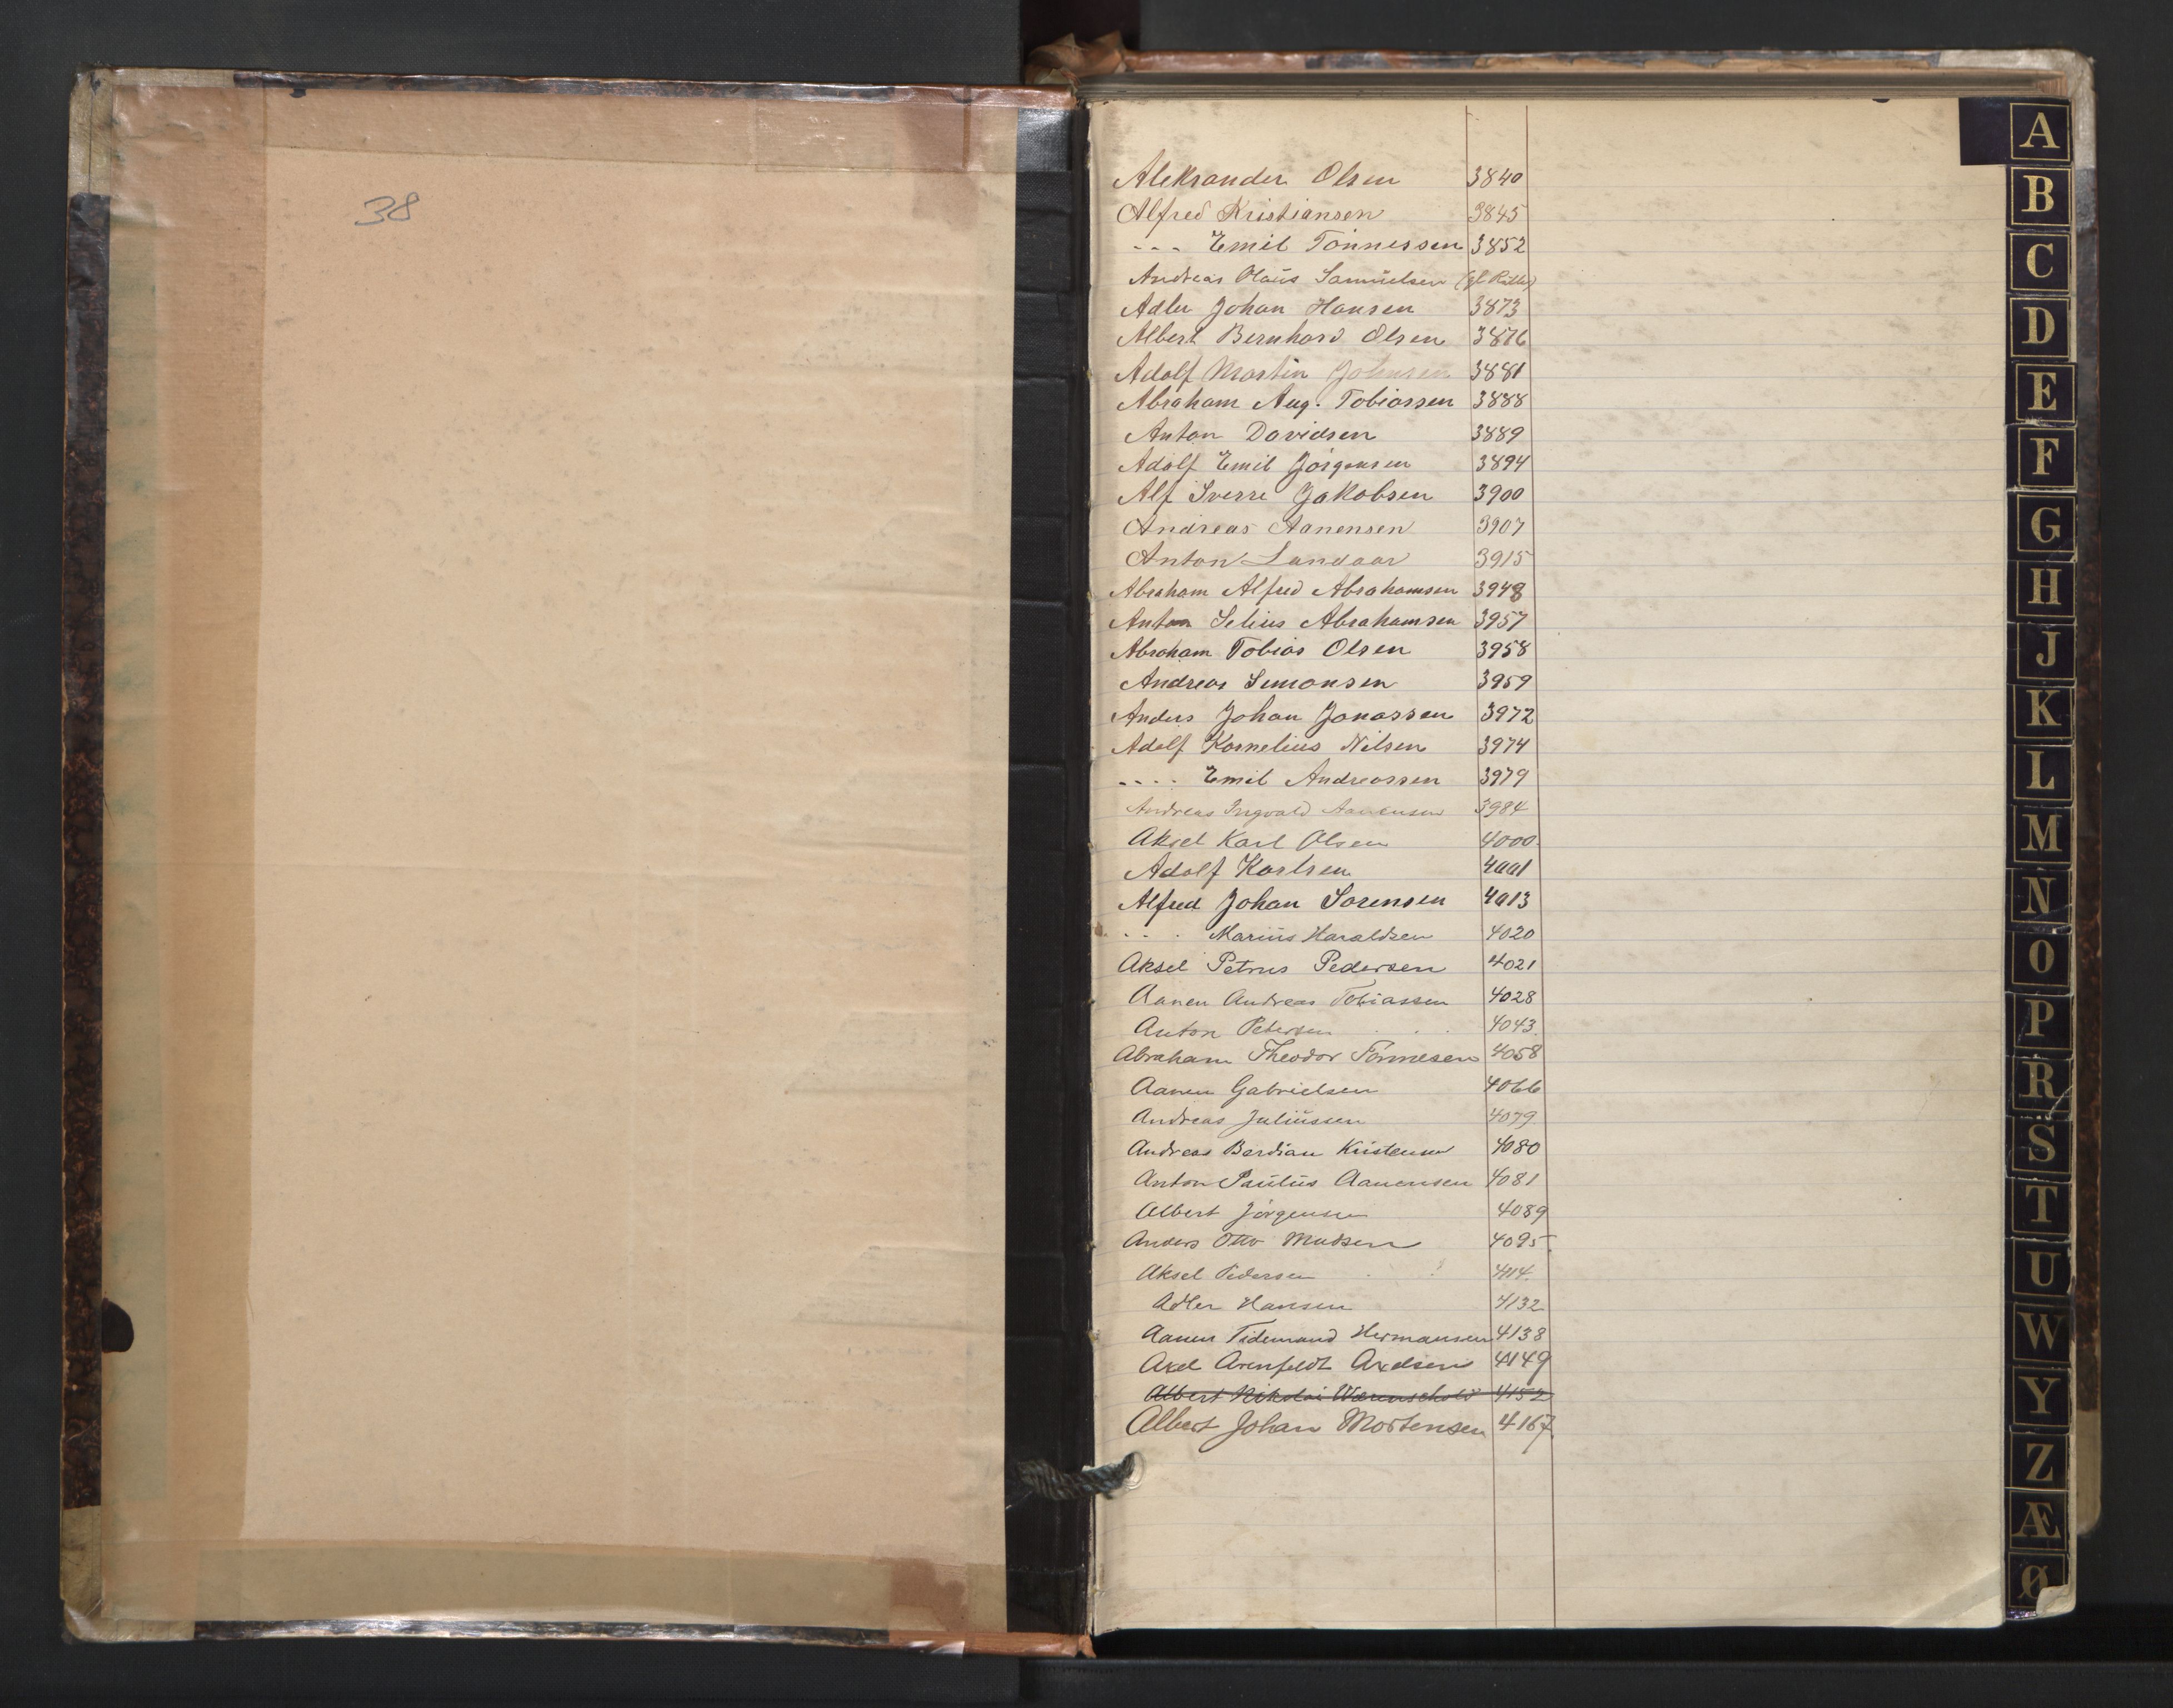 38
Aleksander Olsen 3840
Alfred Kristiansen 3845
- - - Emil Tönnessen 3852
Andreas Olaüs Samüelsen (gl Rulle)
Adler Johan Hansen 3873
Albert Bernhard Olsen 3876
Adolf Martin Johnsen 3881
Abraham Aug. Tobiassen 3888
Anton Davidsen 3889
Adolf Emil Jörgensen 3894
Alf Sverre Jakobsen 3900
Andreas Aanensen 3907
Anton Landaar 3915
Abraham Alfred Abrahamsen 3948
Anton Selius Abrahamsen 3957
Abraham Tobias Olsen 3958
Andreas Simonsen 3959
Anders Johan Jonassen 3972
Adolf Kornelius Nilsen 3974
- - - - Emil Andreassen 3979
Andreas Ingvald Aanensen 3984
Aksel Karl Olsen 4000
Adolf Karlsen 4001
Alfred Johan Sorensen 4013
- - - Mariüs Haraldsen 4020
Aksel Petrus Pedersen 4021
Aanen Andreas Tobiassen 4028
Anton Petersen . . . 4043
Abraham Theodor Tönnesen 4058
Aanen Gabrielsen 4066
Andreas Juliüssen 4079
Andreas Berdian 4080
Anton Paüliüs Aanensen 4081
Albert Jörgensen 4089
Anders Otto Madsen 4095
Aksel Pedersen 4114
Adler Hansen 4132
Aanen Tidemand Hermansen 4138
Axel Arenfeldt Axelsen 4149
Albert Nikolai Werenschold 4152
Albert Johan Mortensen 4167
A
B
C
D
E
F
G
H
J
K
L
M
N
O
P
R
S
T
U
W
Y
Z
Æ
Ø